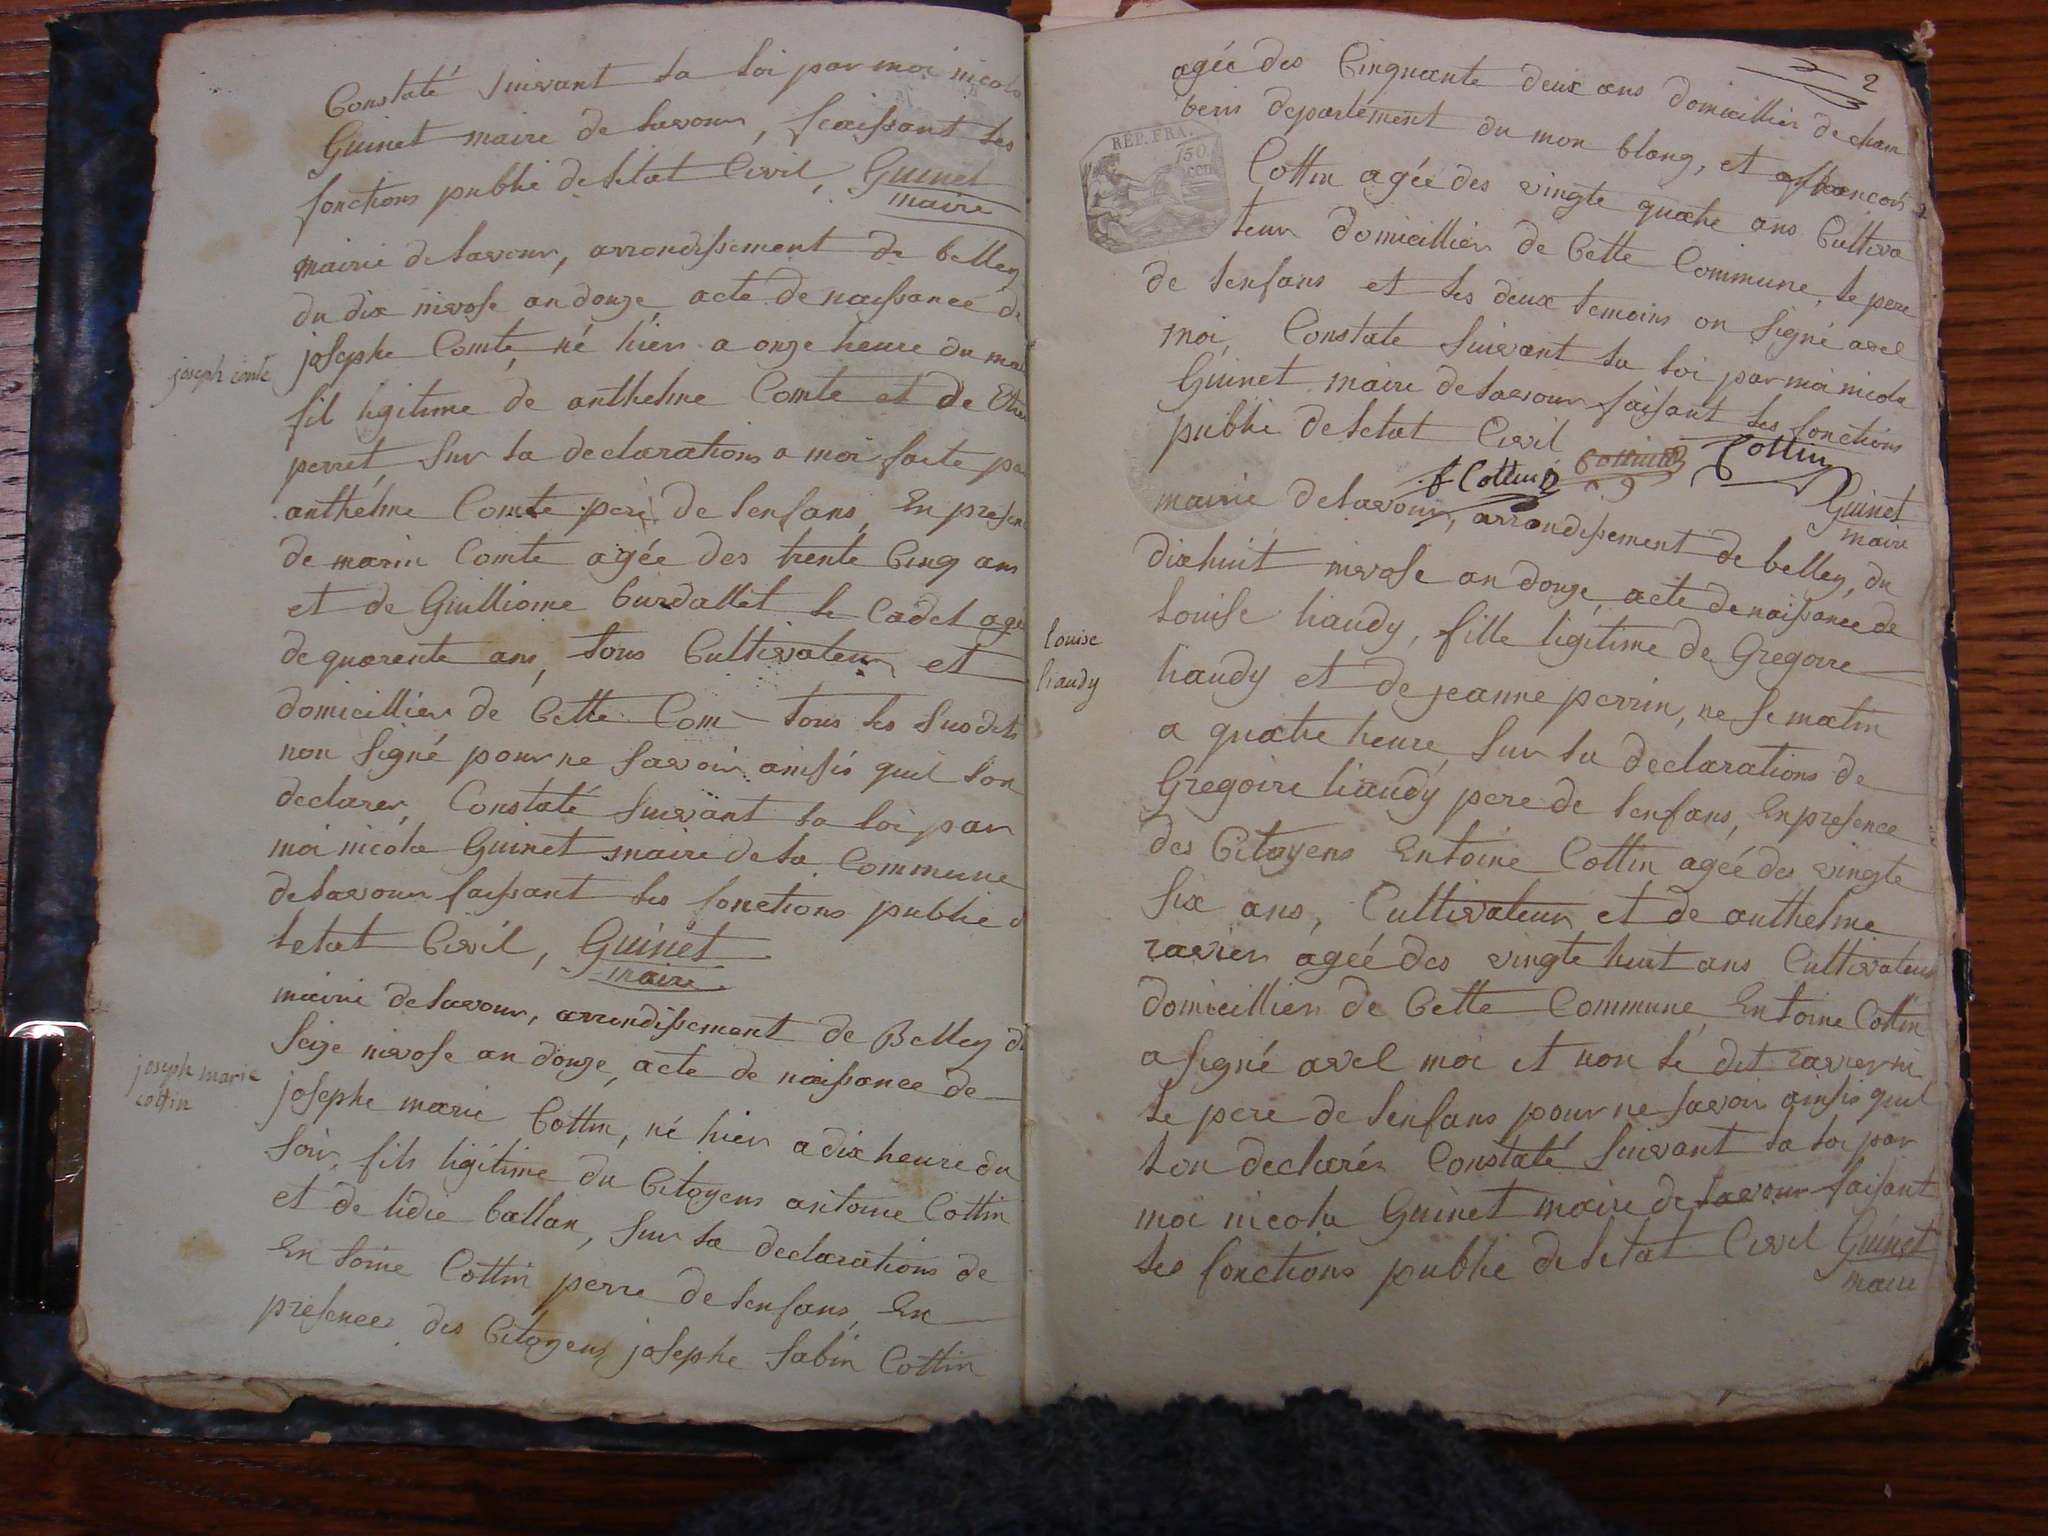 Constaté suivant la loi par moi nicola
Guinet maire de lavour, feaissant les
fonctions publié deletat Civil, Guinet
maire
mairie delavour, arrondissement de belley
du dix nivose an douze, acte de naissance de
joseph conte
josephe Comte, né hier a onze heure du mat
fil ligitime de anthelme Comte et de
perret, sur la declarations a moi faite par
anthelme Comte pere de lenfans, En presen
de marin Comte agée des trente Cinq ans
et de Guilliome burdallet le Cadet agé
de quarente ans, tous Cultivateur et
domicillier de Cette Com tous les susdets
non signé pour ne savoir ainsis quil lon
declarer, Constaté suivant la loi par
moi nicola Guinet maire dela Commune
delavour faissant les fonctions publié d
letat Civil, Guinet
maire
mairie delavour, arrondissement de Belley du
seize nivose an douze, acte de naissance de
joseph marie
cottin
josephe marie Cottin, né hier a dix heure du
soir, fils ligitime du Citoyens antoine Cottin
et de lidie ballan, sur la declarations de
Entoine Cottin perre de lenfans, En
presences des Citoyens josephe sabin Cottin
2
agée des Cinquante deux ans domicillier de cham
beris departement du mon blang, et francois
REP. FRA.
150.
cen
Cottin agée des vingte quatre ans Cultiva
teur domicillier de Cette Commune, le pere
de lenfans et les deux temoins on signé avec
moi, Constate suivant la loi par moi nicola
Guinet maire delavour faisant les fonctions
publié deletat Civil
f Cottin Cottin
Guinet
maire
mairie delavour, arrondissement de belley, du
dixhuit nivose an douze, acte de naissance de
louise
liaudy
louise liaudy, fille ligitime de Gregoire
liaudy et de jeanne perrin, ne le matin
a quatre heure, sur la declarations de
Gregoire liaudy pere de lenfans, En presence
des Citoyens Entoine Cottin agée des vingte
six ans, Cultivateur et de anthelme
ravier agée des vingte huit ans Cultivateur
domicillier de Cette Commune, Entoine Cottin
a signé avec moi et non le dit ravier ni
le pere de lenfans pour ne savoir ainsis quil
lon declarer Constaté suivant la loi par
moi nicola Guinet maire de lavour faisant
les fonctions publié deletat Civil Guinet
maire